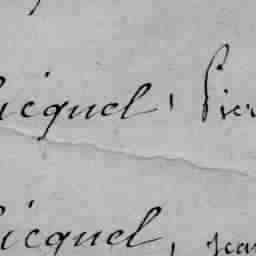 icquel, Pier
icquel, jean